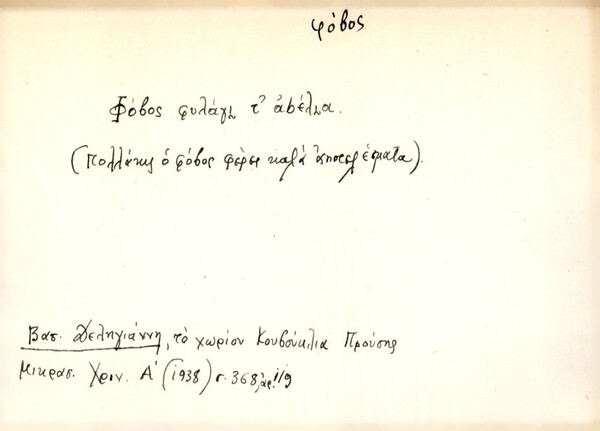 φόβος
Φόβος φυλάγι τ' ἀbέλια.
(Πολλάκις ὁ φόβος φέρει καλά ἀποτελέσματα).
Βασ. Δεληγιάννη, τὸ χωρίον Κουβούκλια Προύσης
Μικρασ. Χρον. Α' (1938) σ. 368, ἀρ. 119